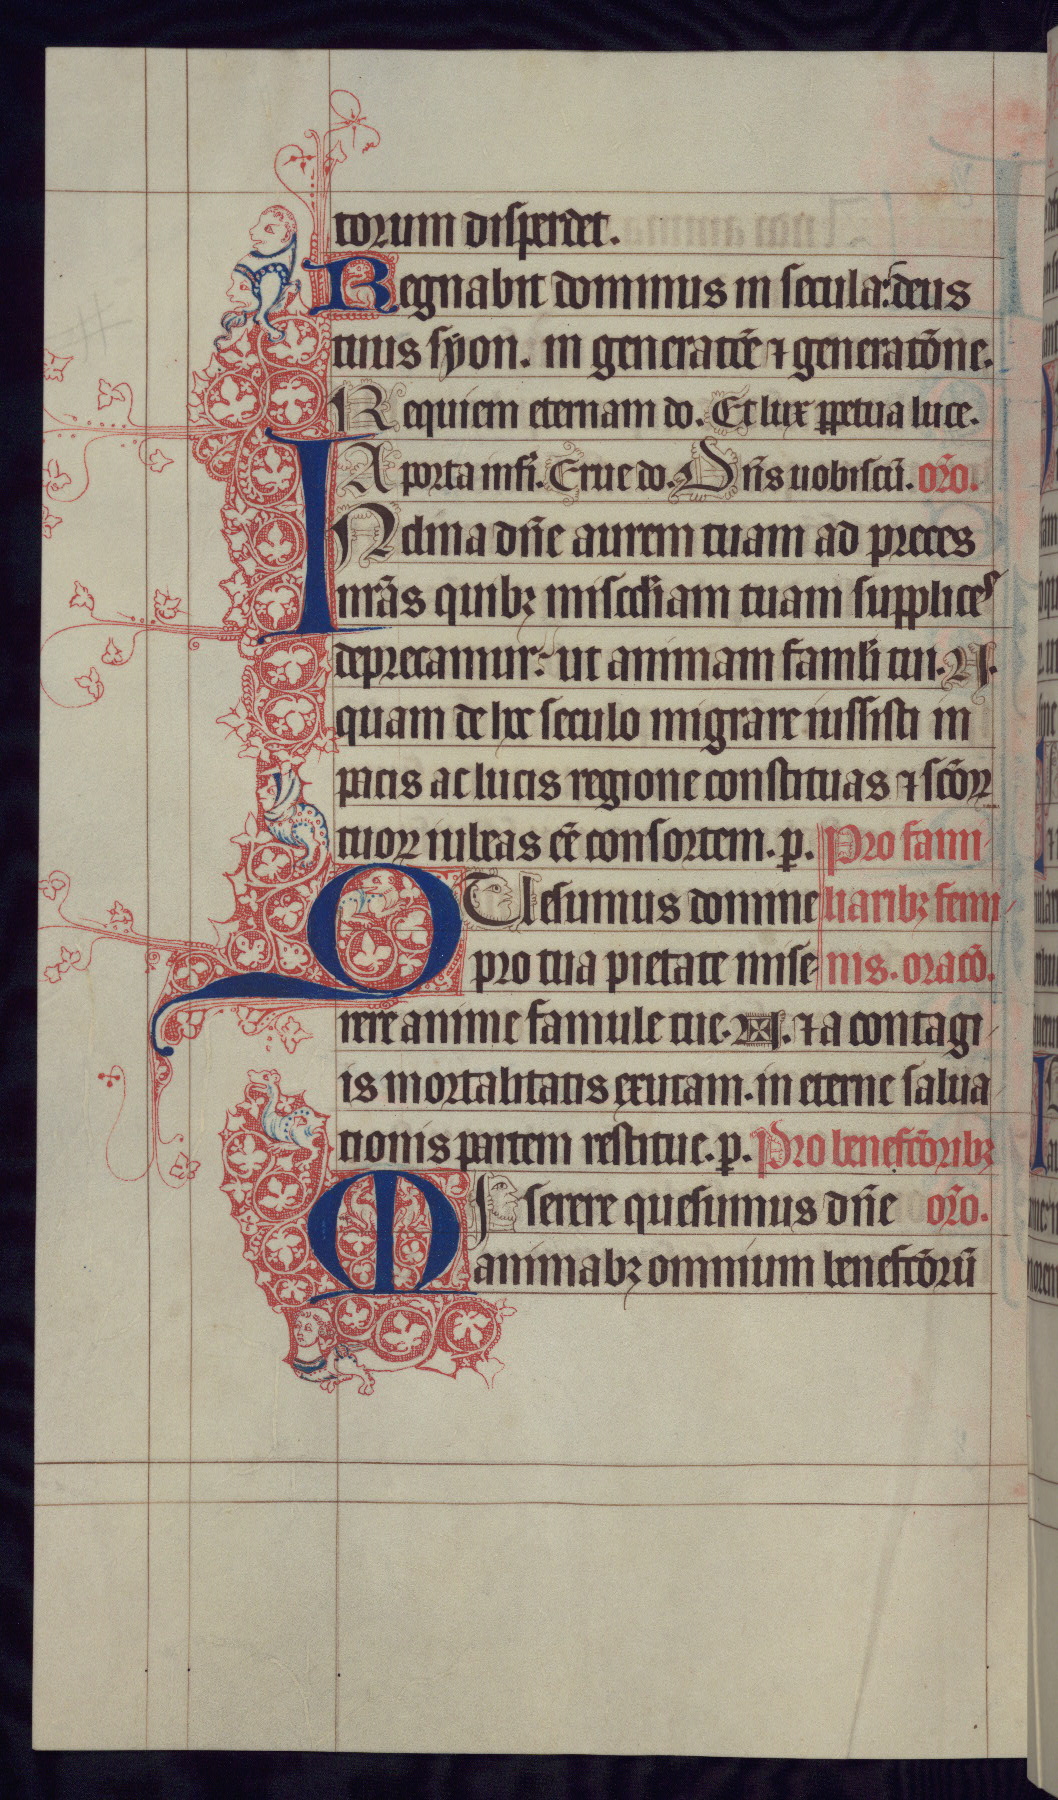 torum disperdet.
Regnabit dominus in secula: deus
tuus syon. in generac̄oe ⁊ generatōne.
Requiem eternam do. Et lux ꝑpetua luce.
A porta infi. Erue do. Dn̄s uobiscū. or̄o.
INclina dn̄e aurem tuam ad preces
nr̄as quibꝫ misc̄diam tuam supplices
deprecamur: ut animam famuli tui. N.
quam de hoc seculo migrare iussisti in
pacis ac lucis regione constituas ⁊ sc̄oꝝ
tuoꝝ iubeas eē consortem. p. Pro fami
QUesumus domine liaribꝫ femi
pro tua pietate mise nis. oratō.
rere anime famule tue. N. ⁊ a contagi
is mortalitatis exutam. in eterne salua
tionis partem restitue. p. Pro benefc̄oribꝫ
MIserere quesumus dn̄e or̄o.
animabꝫ omnium benefc̄orū